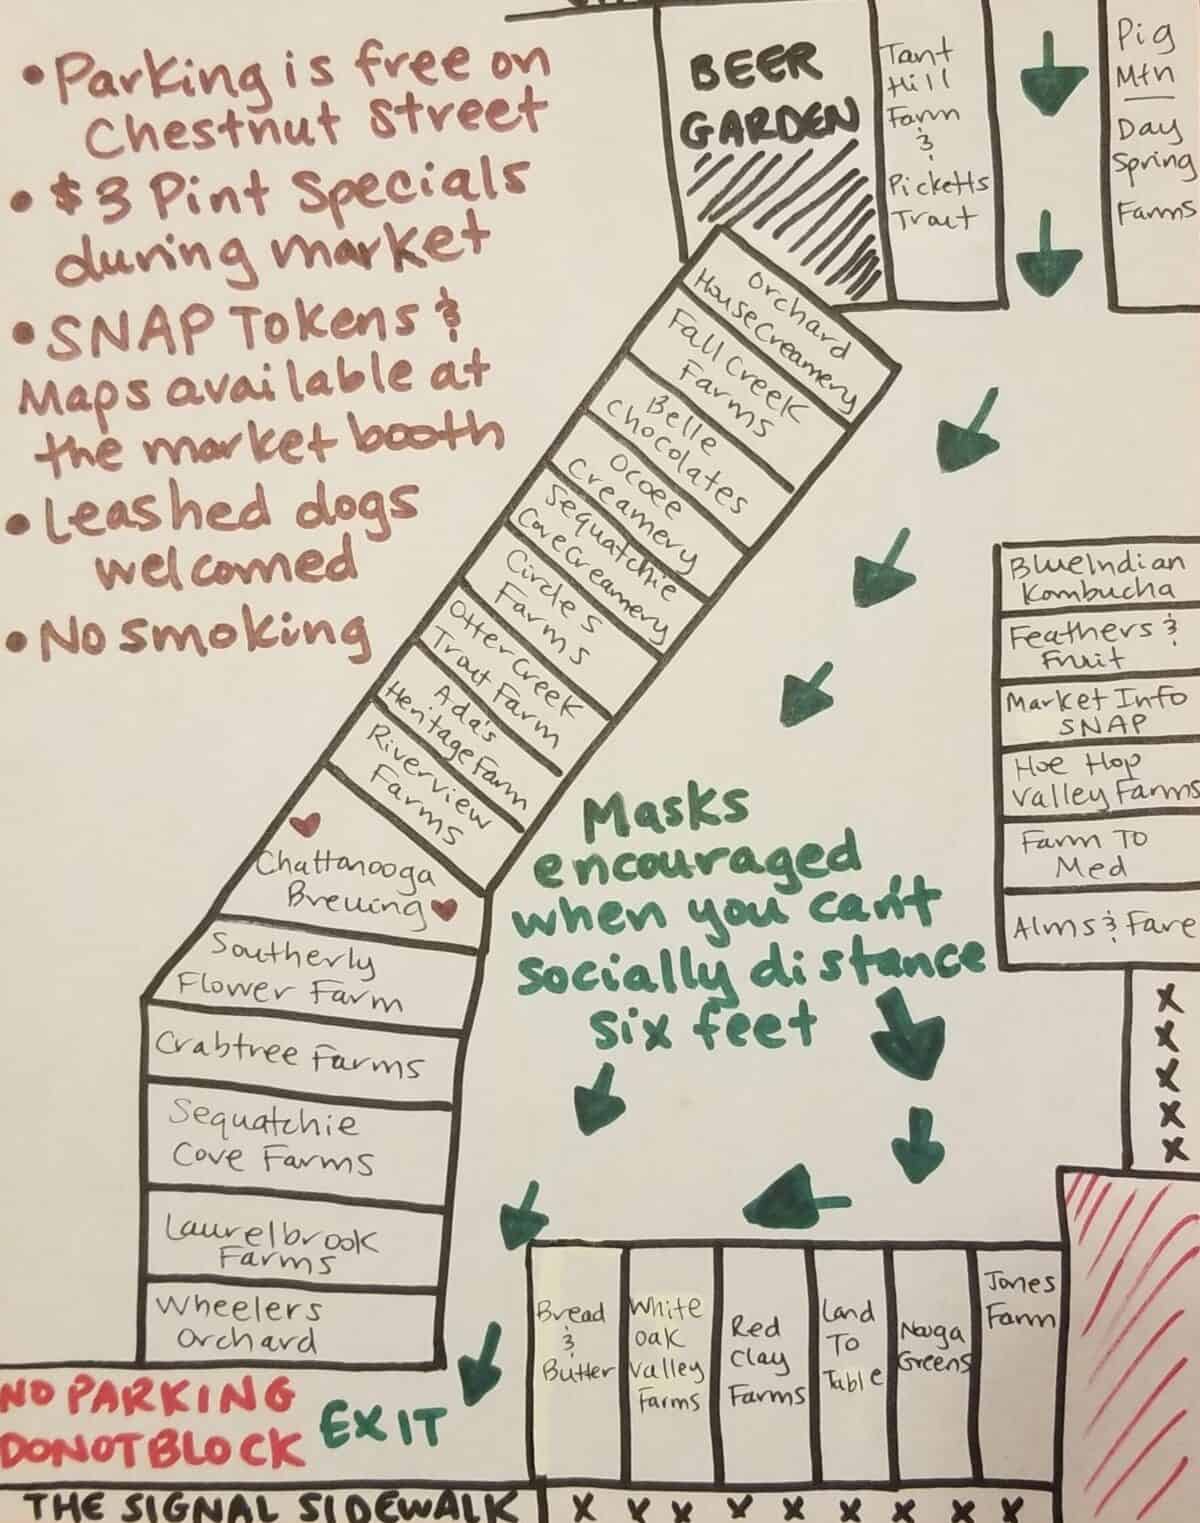 • Parking is free on
Chestnut Street
• $3 Pint Specials
during market
• SNAP Tokens &
Maps available at
the market booth
• Leashed dogs
welcomed
• No smoking
BEER
GARDEN
Tant
Hill
Farm
&
Picketts
Trout
Pig
Mtn
Day
Spring
Farms
Orchard
House Creamery
Fall Creek
Farms
Belle
Chocolates
Ocoee
Creamery
Sequatchie
Cove Creamery
Circle S
Farms
Otter Creek
Trout Farm
Ada's
Heritage Farm
Riverview
Farms
Chattanooga
Brewing
Southerly
Flower Farm
Crabtree Farms
Sequatchie
Cove Farms
Laurelbrook
Farms
Wheelers
Orchard
Blue Indian
Kombucha
Feathers &
Fruit
Market Info
SNAP
Hoe Hop
Valley Farms
Farm To
Med
Alms & Fare
X
X
X
X
X
Masks
encouraged
when you can't
socially distance
six feet
Bread
&
Butter
White
Oak
Valley
Farms
Red
Clay
Farms
Land
To
Table
Nooga
Greens
Jones
Farm
NO PARKING
DO NOT BLOCK
EXIT
THE SIGNAL SIDEWALK
X X X X X X X X X